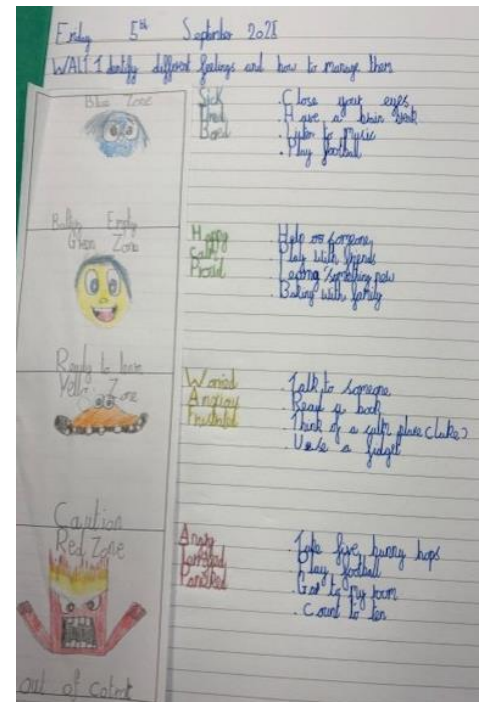 Friday 5th September 2025
WALT Identify different feelings and how to manage them
Blue Zone
Sick
Tired
Bored
. Close your eyes
. Have a brain break
. Listen to Music
. Play football
Battery Empty
Green Zone
Happy
Calm
Proud
. Help someone
. Play with friends
. Learning something new
. Baking with family
Ready to learn
Yellow Zone
Worried
Anxious
Frustrated
. Talk to someone
. Read a book
. Think of a calm place
. Use a fidget
Caution
Red Zone
Angry
Terrified
Panicked
. Take five bunny hops
. Play football
. Go to my room
. Count to ten
out of